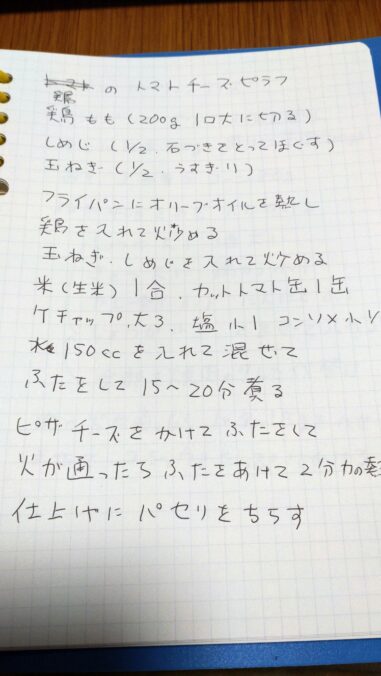 鶏のトマトチーズピラフ
鶏もも(200g 1口大に切る)
しめじ(1/2.石づきをとってほぐす)
玉ねぎ(1/2.うすぎり)
フライパンにオリーブオイルを熱し
鶏を入れて炒める
玉ねぎ.しめじを入れて炒める
米(生米)1合.カットトマト缶1缶
ケチャップ.大3.塩小1 コンソメ小1
水150ccを入れて混ぜて
ふたをして15〜20分煮る
ピザチーズをかけてふたをして
火が通ったらふたをあけて2分加熱
仕上げにパセリをちらす